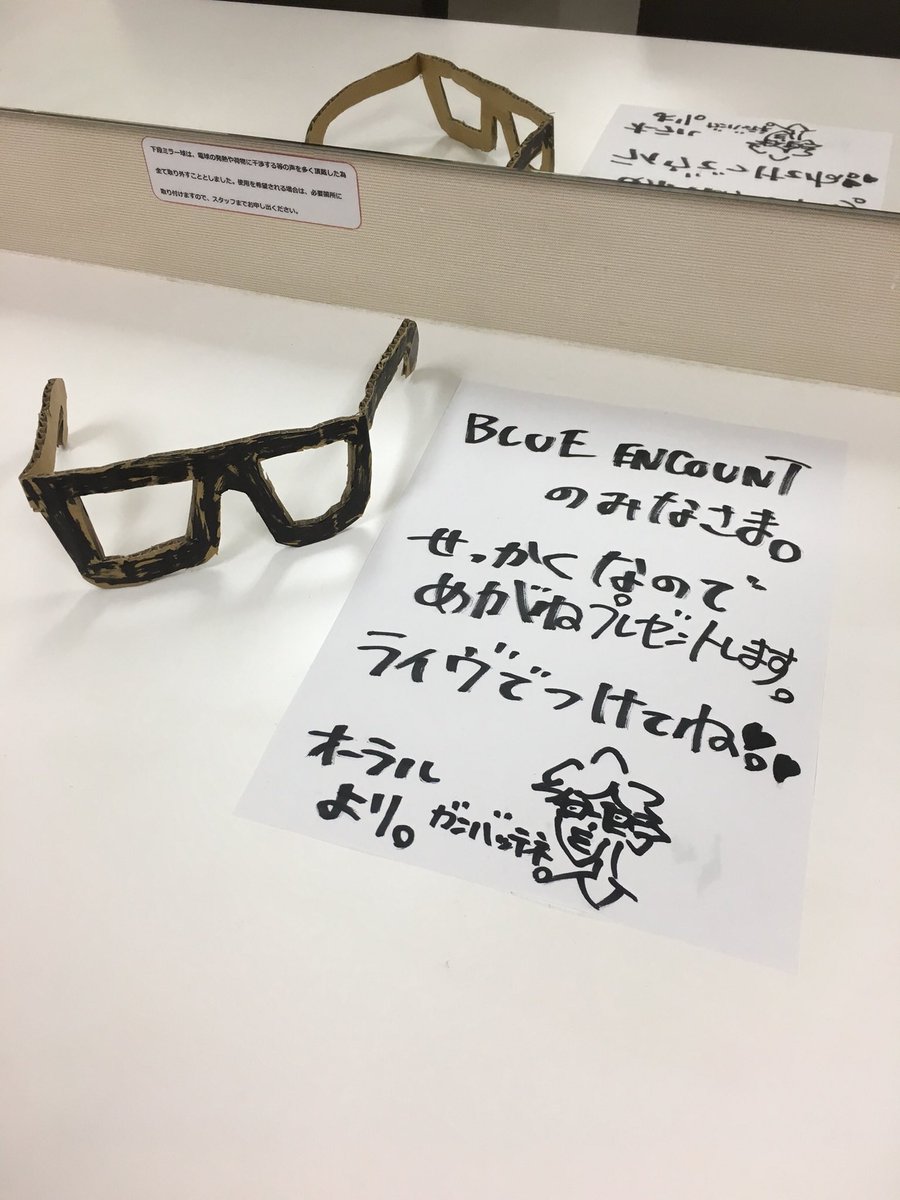 下段ミラー球は、電球の発熱や荷物に干渉する等の声を多く頂戴した為
全て取り外すこととしました。使用を希望される場合は、必要箇所に
取り付けますので、スタッフまでお申し出ください。
BLUE ENCOUNT
のみなさま。
せっかくなので
めがねプレゼントします。
ライヴでつけてね
オーラル
より。
ガンバッテネ。